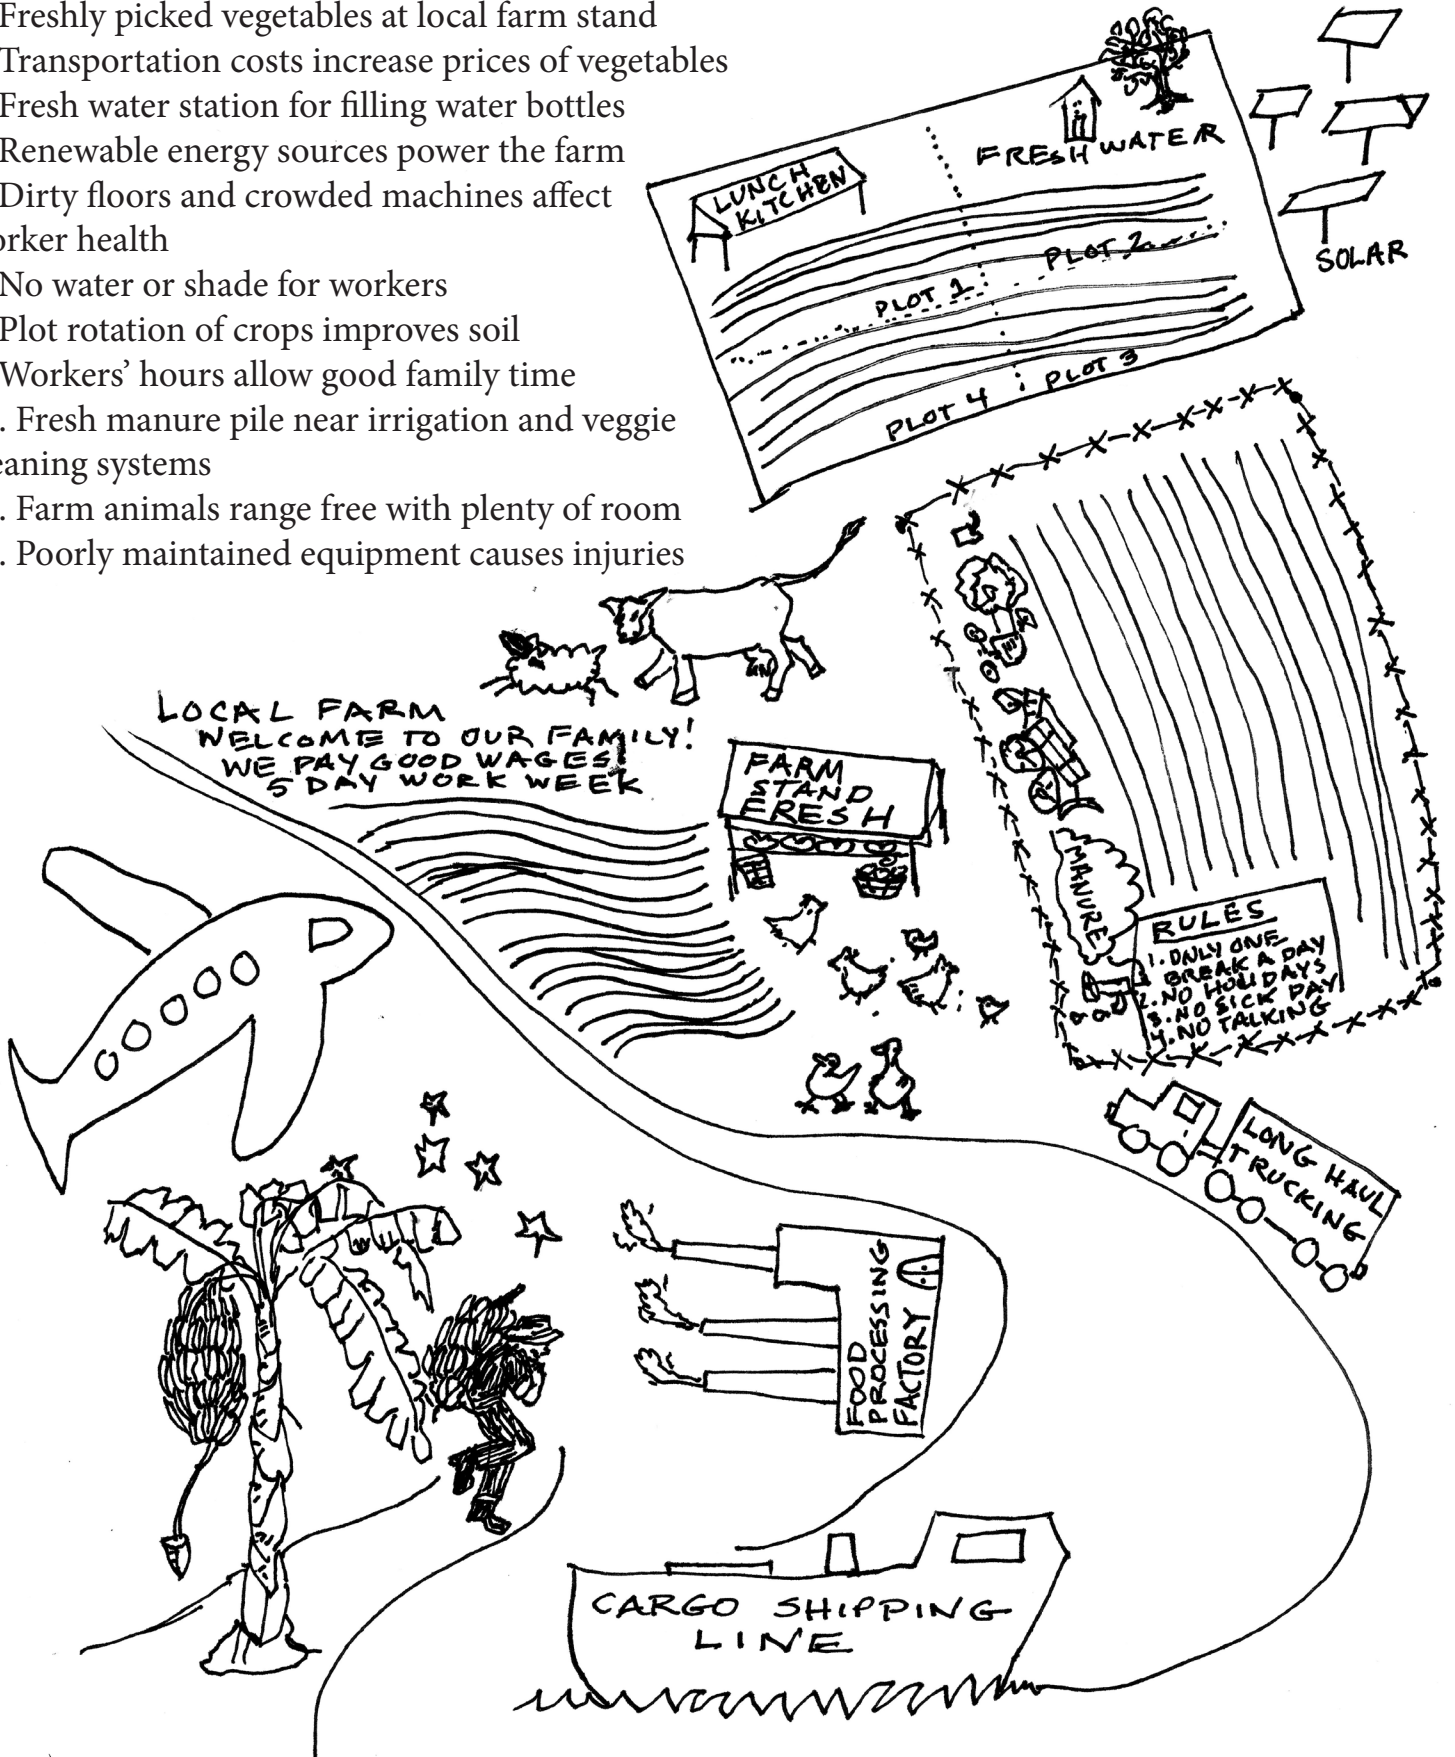 Freshly picked vegetables at local farm stand
Transportation costs increase prices of vegetables
Fresh water station for filling water bottles
Renewable energy sources power the farm
Dirty floors and crowded machines affect
orker health
No water or shade for workers
Plot rotation of crops improves soil
Workers’ hours allow good family time
. Fresh manure pile near irrigation and veggie
eaning systems
. Farm animals range free with plenty of room
. Poorly maintained equipment causes injuries
LUNCH
KITCHEN
FRESH WATER
SOLAR
PLOT 1
PLOT 2
PLOT 4
PLOT 3
LOCAL FARM
WELCOME TO OUR FAMILY!
WE PAY GOOD WAGES!
5 DAY WORK WEEK
FARM
STAND
FRESH
MANURE
RULES
1. ONLY ONE
BREAK A DAY
2. NO HOLIDAYS
3. NO SICK PAY
4. NO TALKING
LONG HAUL
TRUCKING
FOOD
PROCESSING
FACTORY
CARGO SHIPPING
LINE